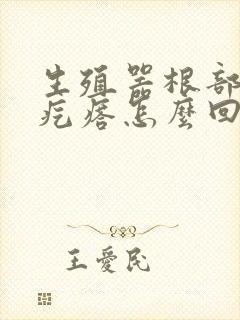 生殖器根部
疙瘩怎麼回
王愛民